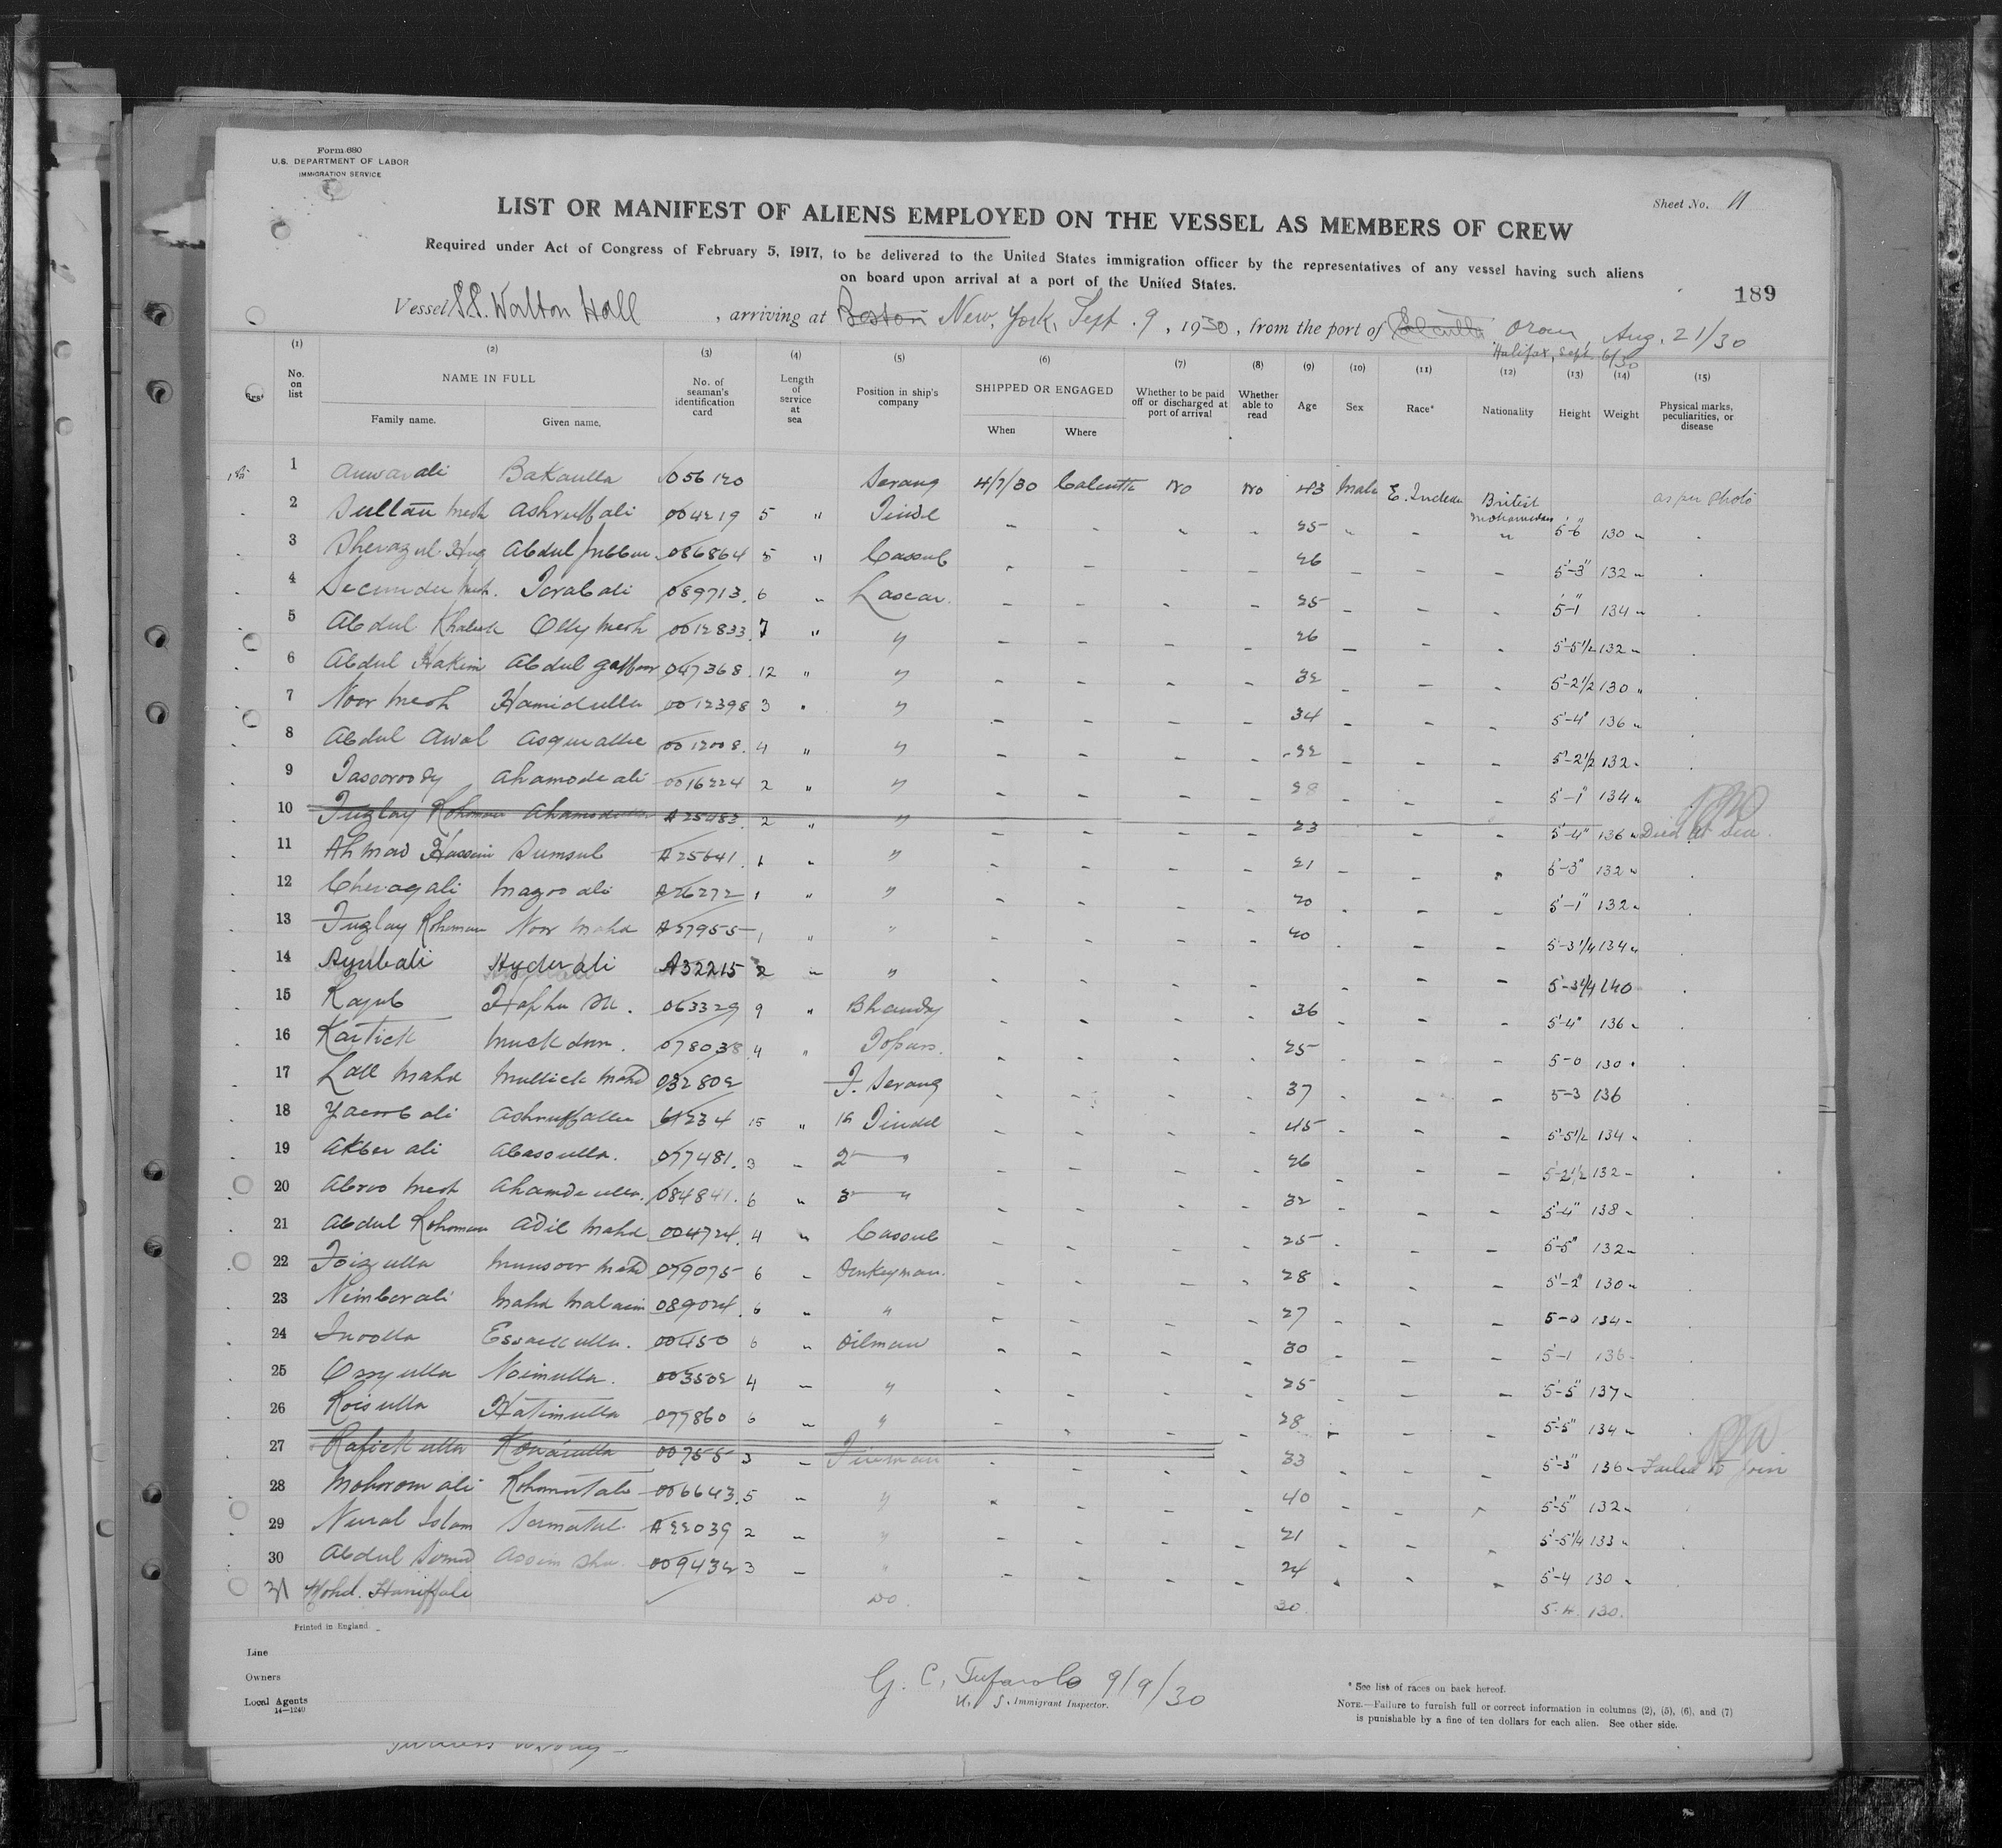 Form 680
U.S. DEPARTMENT OF LABOR
IMMIGRATION SERVICE
Sheet No. 11
LIST OR MANIFEST OF ALIENS EMPLOYED ON THE VESSEL AS MEMBERS OF CREW
Required under Act of Congress of February 5, 1917, to be delivered to the United States immigration officer by the representatives of any vessel having such aliens
on board upon arrival at a port of the United States.
189
Vessel S.S. Walton Hall, arriving at Boston New York, Sept. 9, 1930, from the port of Calcutta Oran, Aug. 21/30
Halifax, Sept. 6/30
(1) (2) (3) (4) (5) (6) (7) (8) (9) (10) (11) (12) (13) (14) (15)
No. on list NAME IN FULL Family name. Given name. No. of seaman's identification card Length of service at sea Position in ship's company SHIPPED OR ENGAGED When Where Whether to be paid off or discharged at port of arrival Whether able to read Age Sex Race* Nationality Height Weight Physical marks, peculiarities, or disease
1 Anwarali Bakaulla 056120 Serang 4/7/30 Calcutta No No 43 Male E. Indian British Mohamedan as per Photo
2 Sultan Meah Ashruffali 004219 5 " Tindl - - - - 25 - - " 5'-6" 130 "
3 Abdul 086864 5 " Cassub - - - - 26 - - - 5'-3" 132 "
4 Torabali 089713 6 " Lascar - - - - 25 - - - 5'-1" 134 "
5 Abdul Khalick Olly Meah 0012833 7 " " - - - - 26 - - - 5'-5½ 132 "
6 Abdul Hakim Abdul Gaffoor 047368 12 " " - - - - 32 - - - 5'-2½ 130 "
7 Noor Meah Hamidulla 0012398 3 " " - - - - 34 - - - 5'-4" 136 "
8 Abdul Awal 0012008 4 " " - - - - 22 - - - 5'-2½ 132 "
9 Ahamode ali 0016224 2 " " - - - - 28 - - - 5'-1" 134 "
10 Fuzlay Rohoman A25483 2 " " - - - - 23 - - 5'-4" 136 " Died at Sea.
11 Ahmad Hossein Sumsul A25641 1 " " - - - - 21 - - 5'-3" 132 "
12 Cheragali Magoo ali A26272 1 " " - - - - 20 - - - 5'-1" 132 "
13 Fuzlay Rohoman Noor Mahd A27955 1 " " - - - - 40 - - - 5'-3¼ 134 "
14 Ayubali Hyderali A32215 2 " " - - - 5'-3¼ 140
15 063329 9 " Bhandy - - - - 36 - - - 5'-4" 136 "
16 Kartick 078038 4 " Topass. - - - - 25 - - - 5-0 130 "
17 Lall Mahd Mullick Mahd 032802 F. Serang - - - - 37 - - - 5-3 136
18 Yacoob ali Ashruffallee 61234 15 " 1st Tindel - - - - 45 - - - 5'-5½ 134 "
19 Akber ali Abasoulla. 077481 3 " 2 " - - - - 26 - - - 5'-2½ 132 "
20 Abroo Meah 084841 6 " 3 " - - - - 32 - - - 5'-4" 138 "
21 Abdul Rohoman Adil Mahd 004724 4 " Cassub - - - - 25 - - - 5'-5" 132 "
22 Foizulla Munsoor Mahd 079075 6 " Donkeyman. - - - - 28 - - - 5'-2" 130 "
23 Nimberali Mahd 089024 6 " " - - - - 27 - - - 5-0 134 "
24 Essackulla. 00450 6 " Oilman - - - - 30 - - - 5'-1 136 "
25 Ozzyulla Noimulla. 003502 4 " " - - - - 25 - - - 5'-5" 137 "
26 Roisulla Hatimulla 077860 6 " " - - - - 28 - - - 5'-5" 134 "
27 Rafickulla 00755 3 " Fireman - - - - 33 - - - 5'-3" 136 " Failed to join
28 Mohorom ali 006643 5 " " - - - - 40 - - - 5'-5" 132 "
29 Nurul Islam A22039 2 " " - - - - 21 - - - 5'-5¼ 133 "
30 Abdul 009432 3 " " - - - - 24 - - - 5'-4 130 "
31 Mohd. Haniffale Do. 30 5.4 130.
Printed in England
Line
Owners
Local Agents
14—1240
G. C. Tufarolo 9/9/30
U. S. Immigrant Inspector.
* See list of races on back hereof.
NOTE.—Failure to furnish full or correct information in columns (2), (5), (6), and (7)
is punishable by a fine of ten dollars for each alien. See other side.